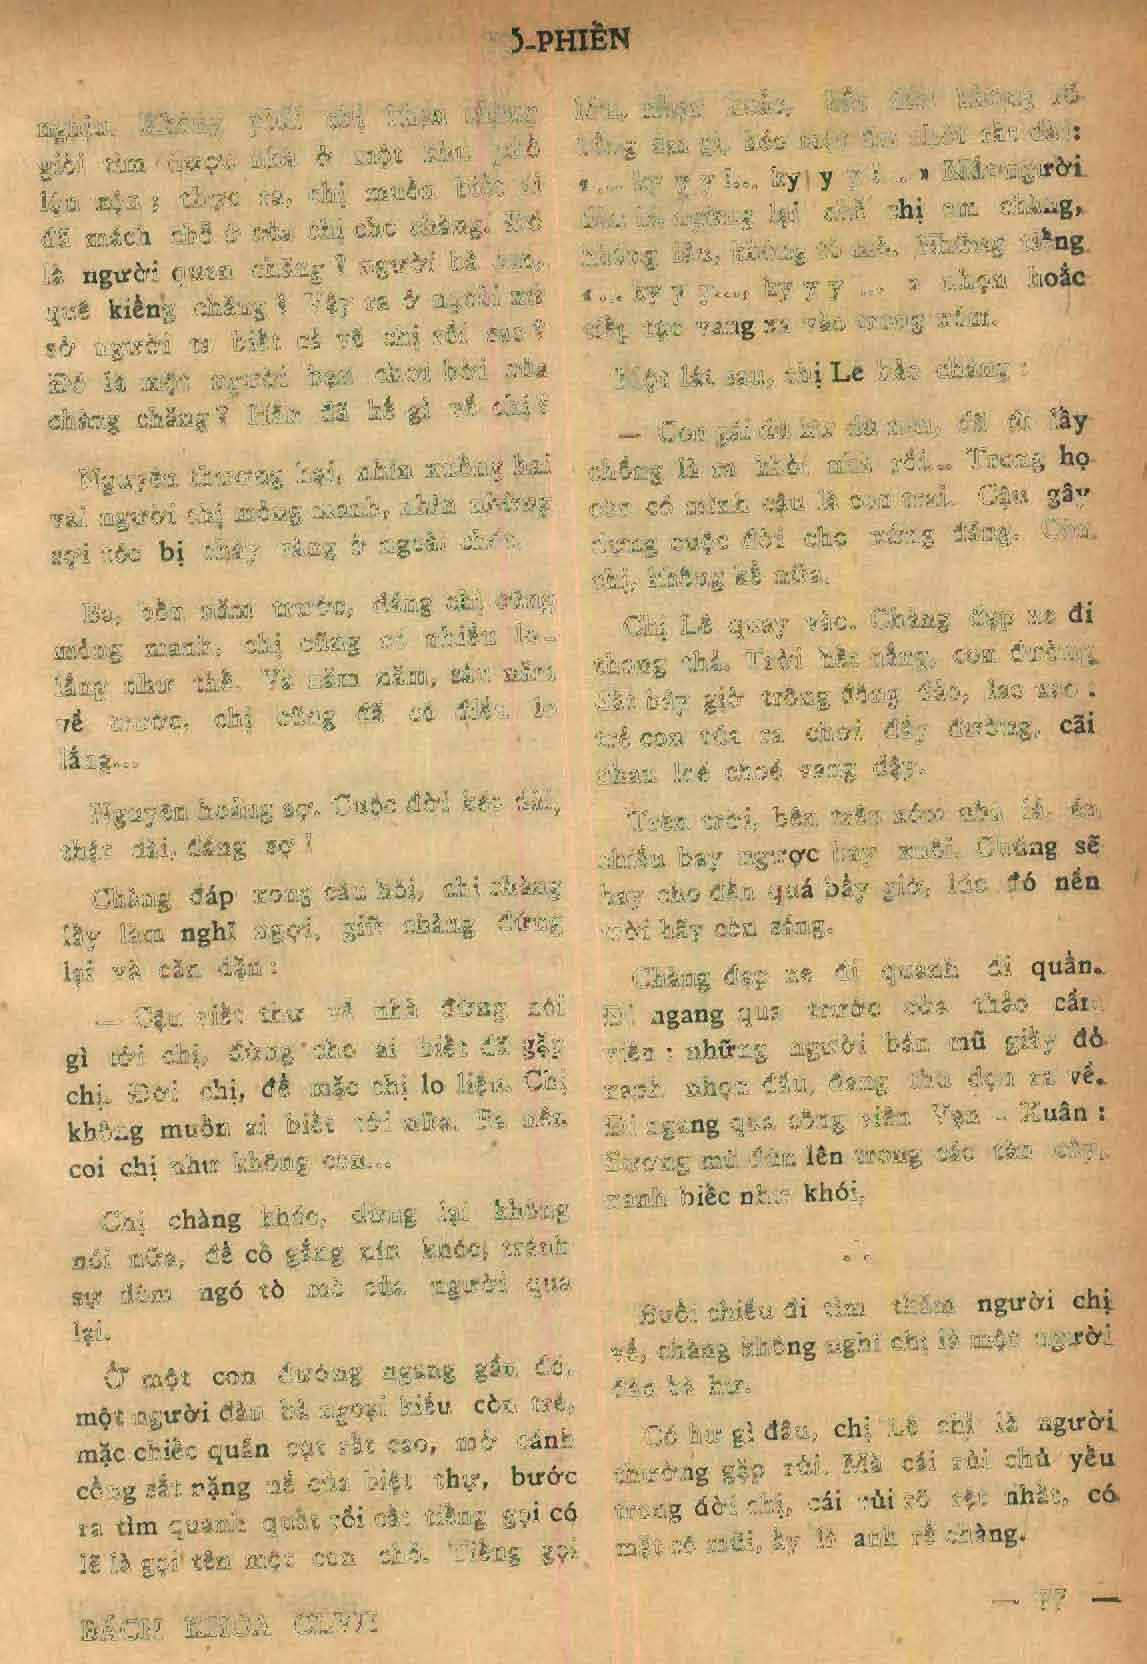 Õ-PHIẾN
nghịu. Không phải chị thán
giỏi tìm được nhà ở một khu phố
lộn xộn ; thực ra, chị muốn biết ai
đã mách chỗ ở của chị cho chàng. Đó
là người quen chăng ? người bà con,
quê kiểng chăng ? Vậy ra ở ngoài xứ
sở người ta biết cả về chị rồi sao ?
Đó là một người bạn chơi bời của
chàng chăng ? Hắn đã kể gì về chị ?
Nguyên thương hại, nhìn xuống hai
vai người chị mỏng manh, nhìn những
sợi tóc bị cháy vàng ở ngoài chót.
Ba, bốn năm trước, dáng chị cũng
mỏng manh, chị cũng có nhiều lo-
lắng như thế. Và năm năm, sáu năm
về trước, chị cũng đã có điều lo
lắng...
Nguyên hoảng sợ. Cuộc đời kéo dài,
thật dài, đáng sợ !
Chàng đáp xong câu hỏi, chị chàng
lấy làm nghĩ ngợi, giữ chàng đứng
lại và căn dặn :
— Cậu viết thư về nhà đừng nói
gì tới chị, đừng cho ai biết đã gặp
chị. Đời chị, để mặc chị lo liệu. Chị
không muốn ai biết tới nữa. Ba nên
coi chị như không còn...
Chị chàng khóc, dừng lại không
nói nữa, để cố gắng nín khóc, tránh
sự dòm ngó tò mò của người qua
lại.
Ở một con đường ngang gần đó,
một người đàn bà ngoại kiều còn trẻ,
mặc chiếc quần cụt rất cao, mở cánh
cổng sắt nặng nề của biệt thự, bước
ra tìm quanh quất rồi cất tiếng gọi có
lẽ là gọi tên một con chó. Tiếng gọi
lớn, nhọn hoắc, bắt đầu không rõ
tiếng gì, kéo một âm thôi rất dài :
«... ky y y !... ky y y ! . . » Mấy người
lại nhìn chị em chàng,
không lâu, không tò mò. Những tiếng
«... ky y y..., ky y y ... » nhọn hoắc
tiếp tục vang xa vào trong xóm.
Một lát sau, chị Lê bảo chàng :
— Con gái dù hư dù nên, đã đi lấy
chồng là ra khỏi nhà rồi... Trong họ
còn có mình cậu là con trai. Cậu gây
dựng cuộc đời cho xứng đáng. Còn
chị, không kể nữa.
Chị Lê quay vào. Chàng đạp xe đi
thong thả. Trời bớt nắng, con đường
đất bây giờ trông đông đảo, lao xao :
trẻ con túa ra chơi đầy đường, cãi
nhau loé choé vang dậy.
Trên trời, bên trên xóm nhà lá, én
chiều bay ngược bay xuôi. Chúng sẽ
bay cho đến quá bảy giờ, lúc đó nền
trời hãy còn sáng.
Chàng đạp xe đi quanh đi quẩn.
Đi ngang qua trước cửa thảo cầm
viên : những người bán mũ giấy đỏ
xanh nhọn đầu, đang thu dọn ra về.
Đi ngang qua công viên Vạn - Xuân :
Sương mù đùn lên trong các tàn cây,
xanh biếc như khói.
. . .
Buổi chiều đi tìm thăm người chị
về, chàng không nghĩ chị là một người
đàn bà hư.
Có hư gì đâu, chị Lê chỉ là người
thường gặp rủi. Mà cái rủi chủ yếu
trong đời chị, cái rủi rõ rệt nhất, có
mặt có mũi, ấy là anh rể chàng.
BÁCH KHOA CLVII
— 77 —